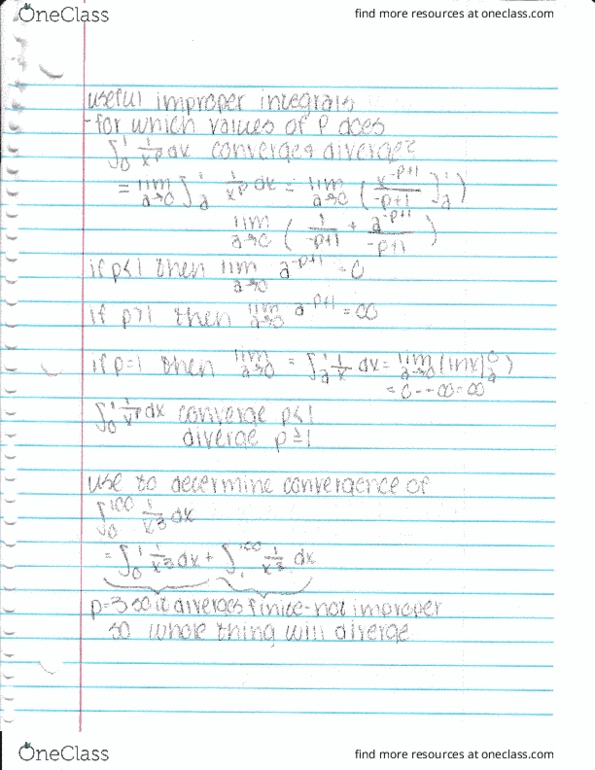 OneClass find more resources at oneclass.com
useful improper integrals
-for which values of P does
∫₀¹ 1/x^p dx converge & diverge?
= lim a→0 ∫ₐ¹ 1/x^p dx = lim a→0 ( x^(-p+1)/(-p+1) ]ₐ¹ )
lim a→0 ( 1/(-p+1) + a^(-p+1)/(-p+1) )
if p<1 then lim a→0 a^(-p+1) = 0
if p>1 then lim a→0 a^(-p+1) = ∞
if p=1 then lim a→0 = ∫ₐ¹ 1/x dx = lim a→0 (lnx|ₐ⁰)
= 0--∞=∞
∫₀¹ 1/x^p dx converge p<1
diverge p≥1
use to determine convergence of
∫₀¹⁰⁰ 1/x³ dx
= ∫₀¹ 1/x³ dx + ∫₁¹⁰⁰ 1/x³ dx
p=3 so it diverges finite-not improper
so whole thing will diverge
OneClass find more resources at oneclass.com